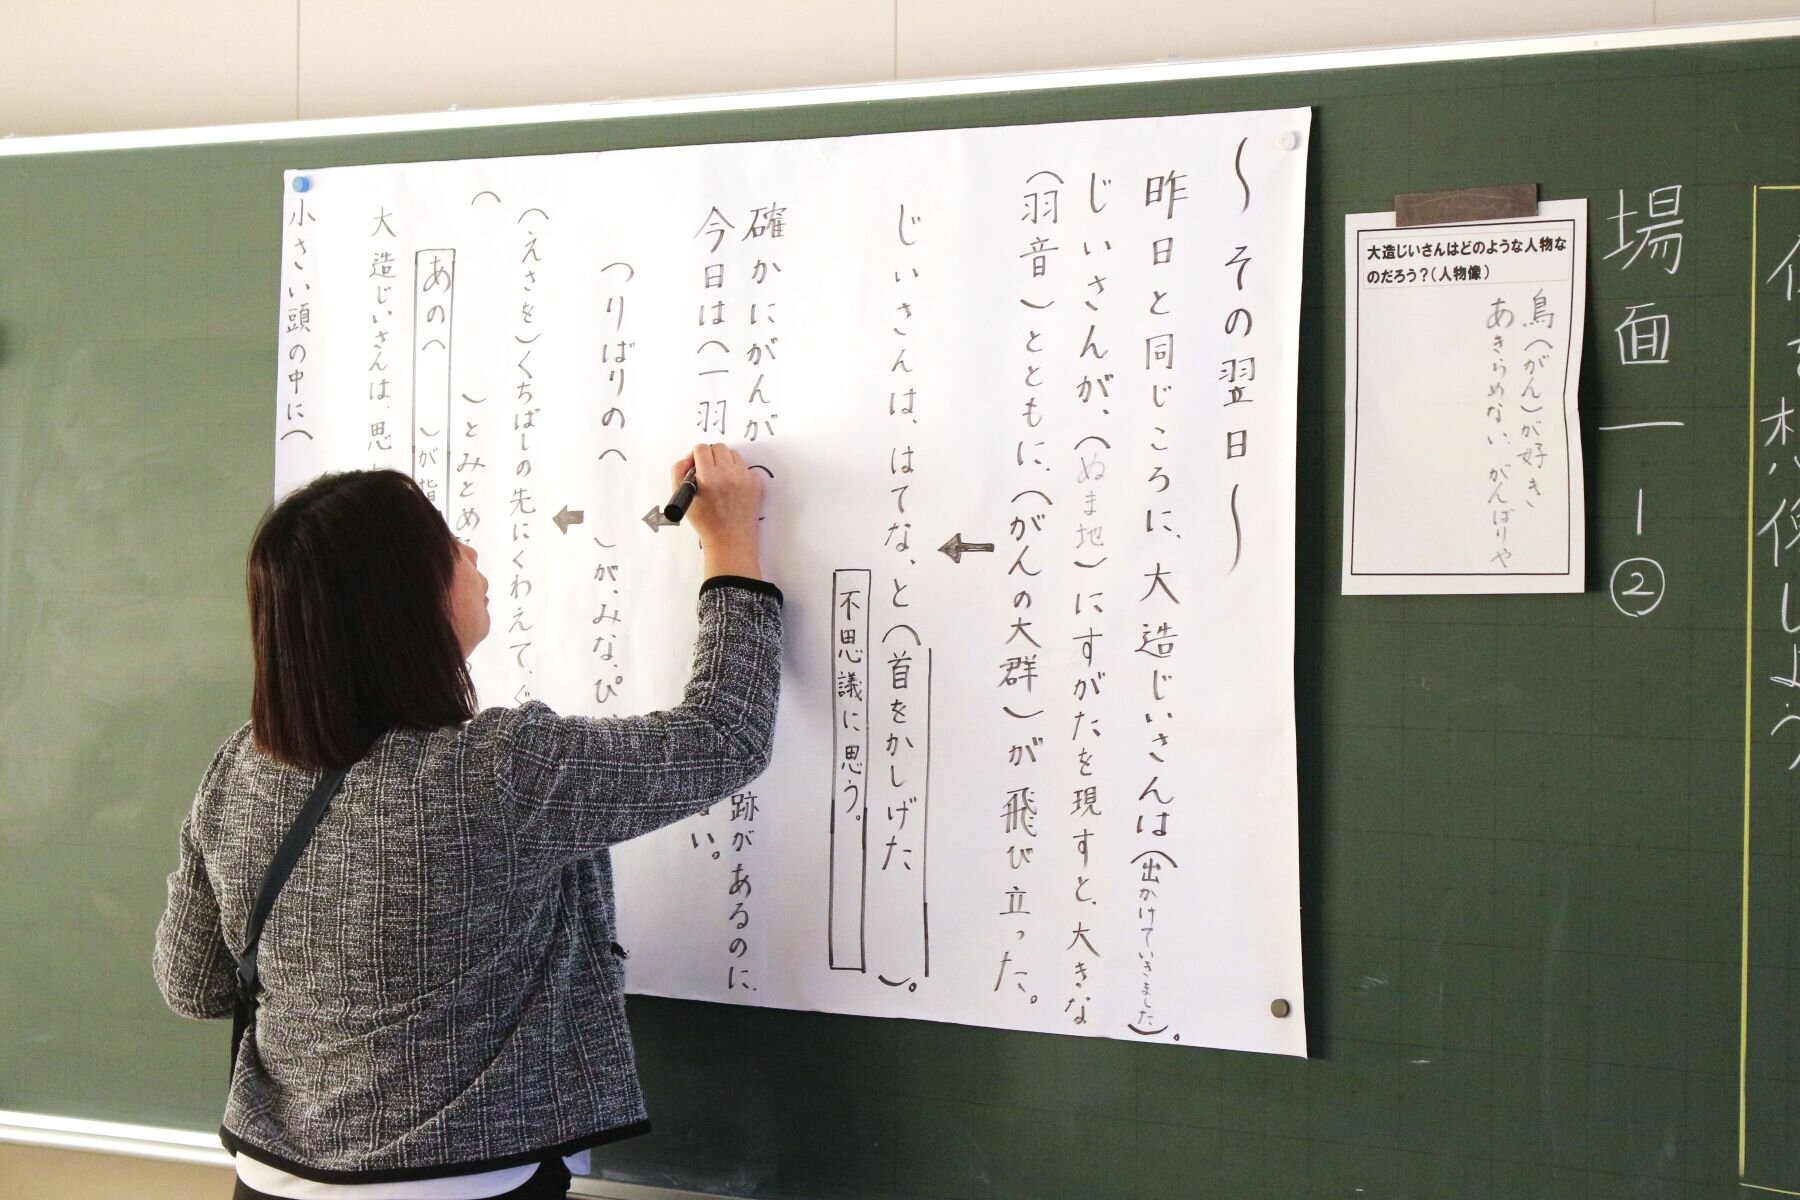 想像しよう
場面一ー②
大造じいさんはどのような人物な
のだろう？（人物像）
鳥（がん）が好き
あきらめない、がんばりや
～その翌日～
昨日と同じころに、大造じいさんは（出かけていきました）。
じいさんが、（ぬま地）にすがたを現すと、大きな
（羽音）とともに、（がんの大群）が飛び立った。
じいさんは、はてな、と（首をかしげた　）。
不思議に思う。
確かにがんが（
跡があるのに、
今日は（一羽
ない。
つりばりの（　）が、みな、ぴ
（えさを）くちばしの先にくわえて、ぐ
（　）とみとめ
あの（　）が指
大造じいさんは、思
小さい頭の中に（